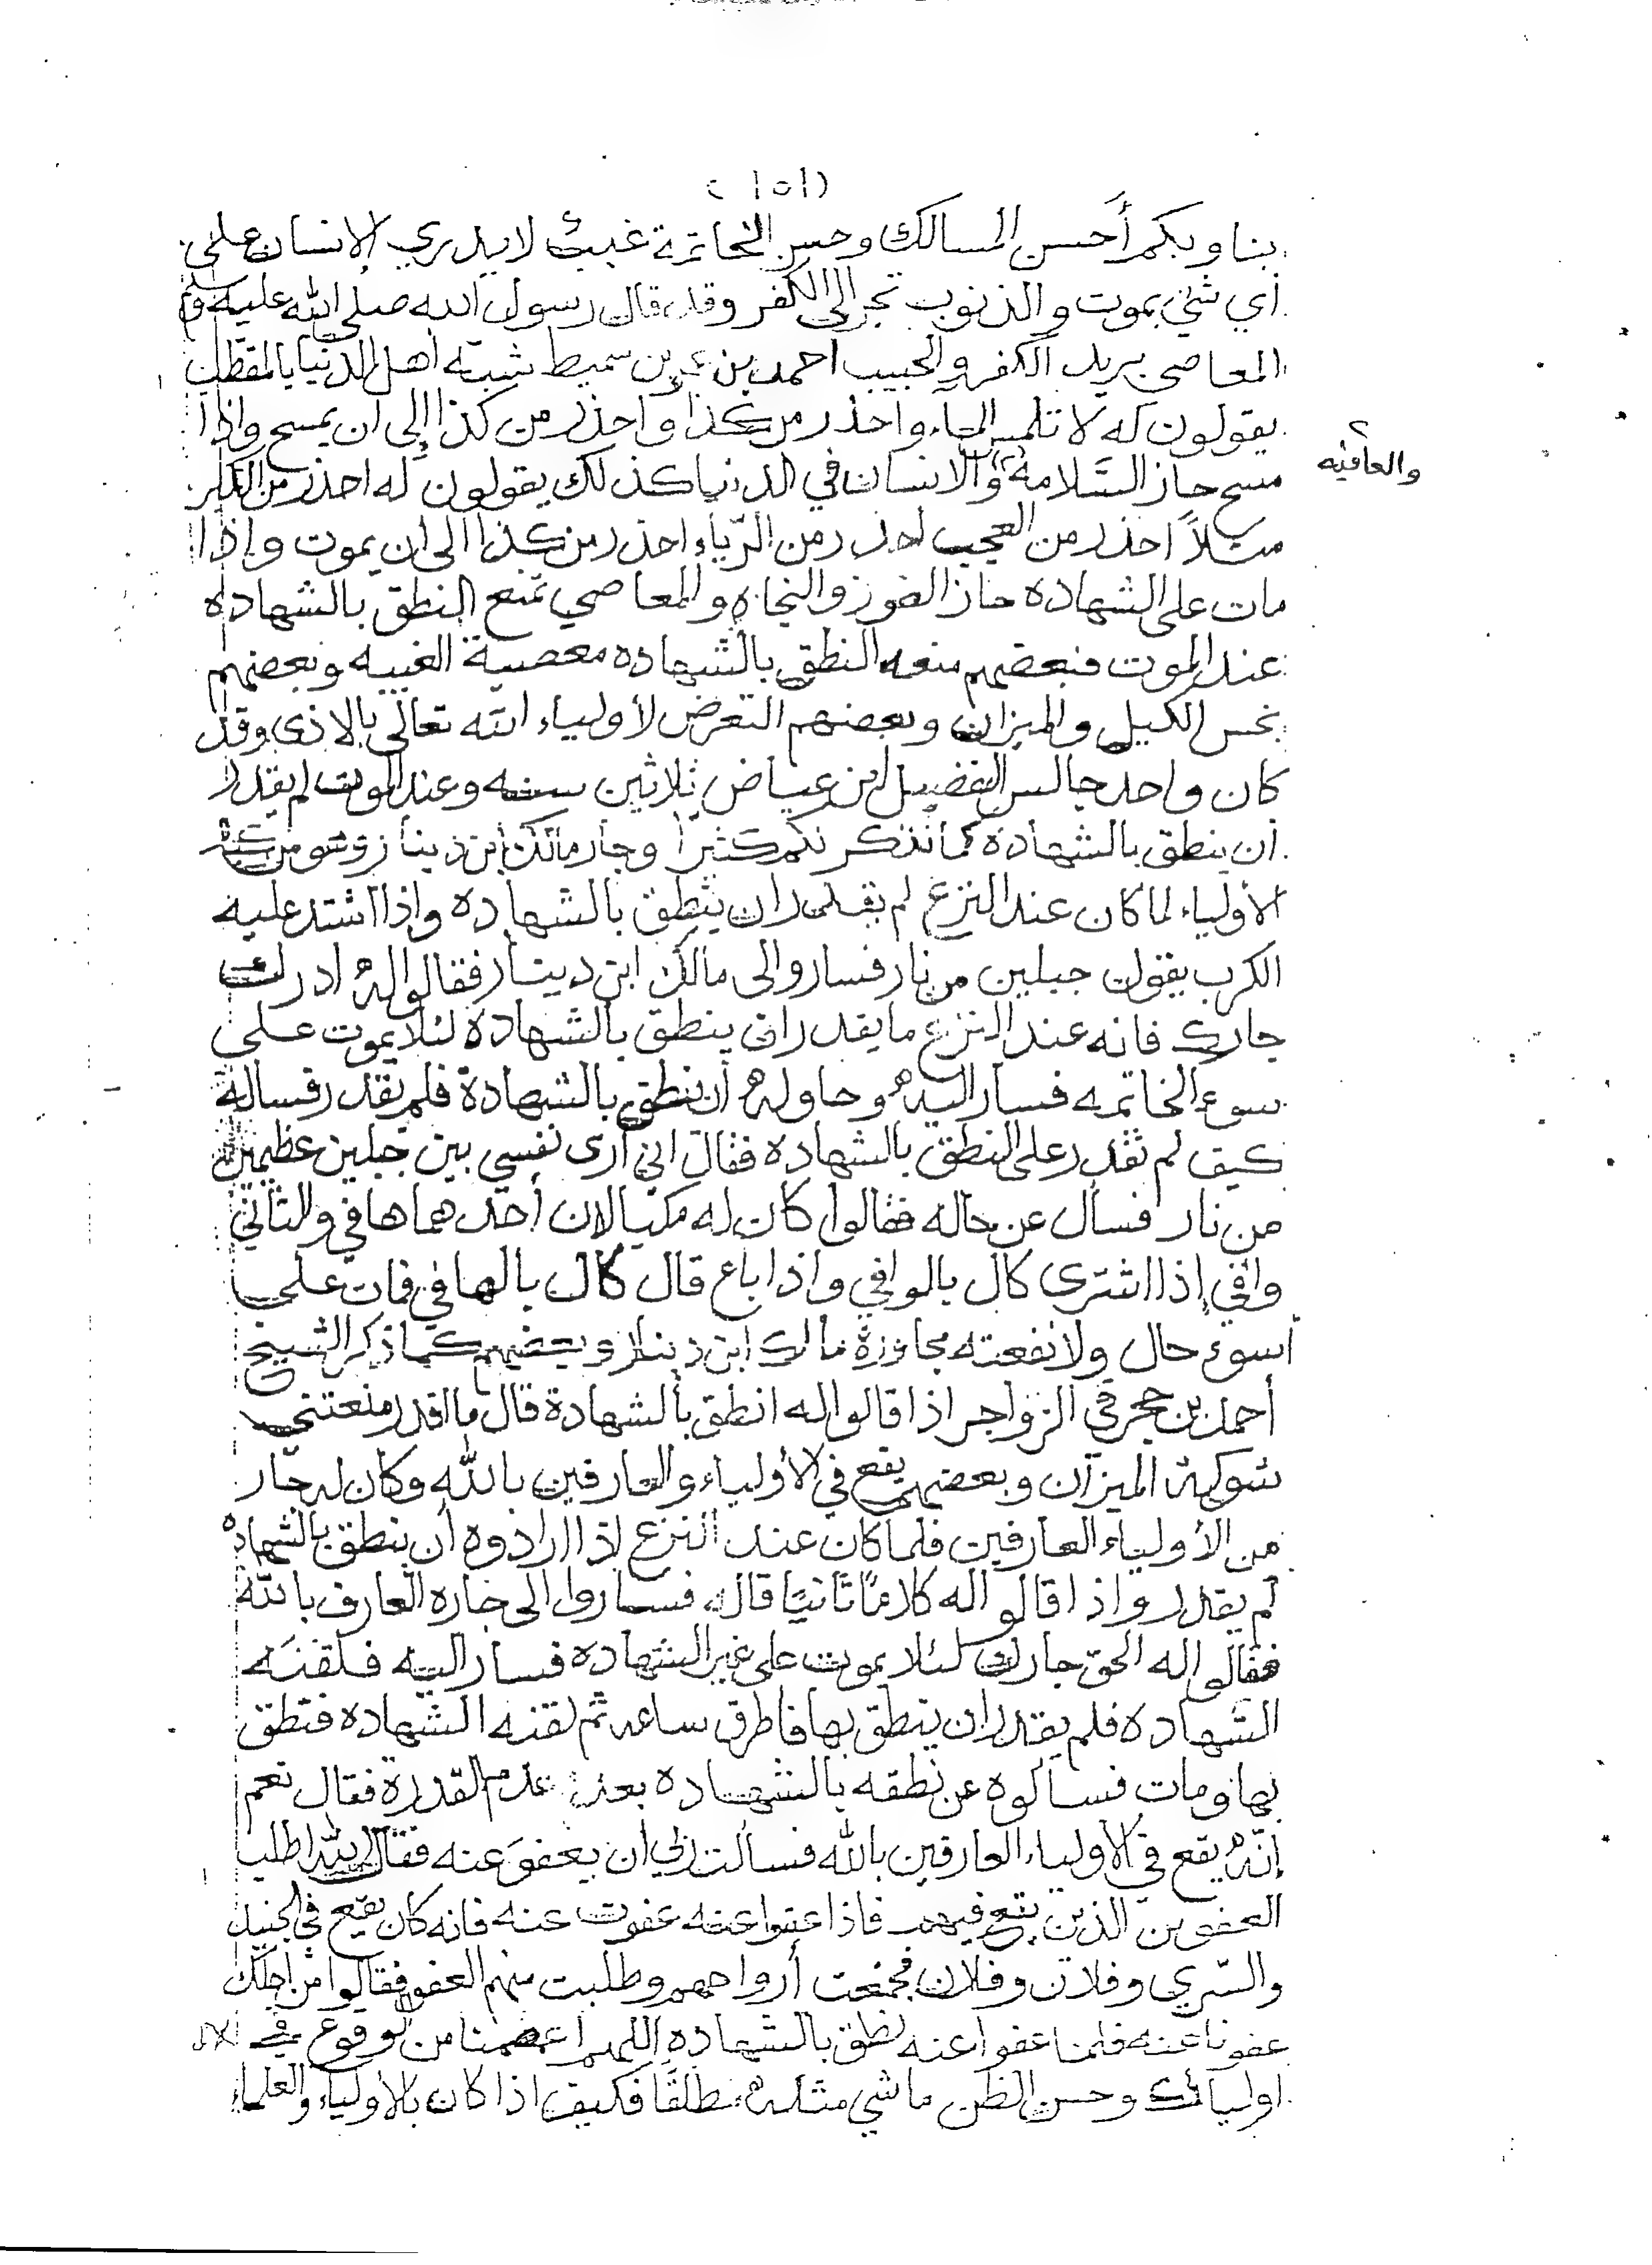 (١٥١)
بنا وبكم أحسن المسالك وحسن الخاتمة غيب لا يدري الإنسان على
أي شيء يموت والذنوب تجر إلى الكفر وقد قال رسول الله صلى الله عليه وسلم
المعاصي بريد الكفر والحبيب احمد بن عمر بن سميط شبه أهل الدنيا بالمقطب
يقولون له لا تلمس الماء واحذر من كذا واحذر من كذا إلى ان يمسح واذا
مسح حاز السَّلامة والانسان في الدنيا كذلك يقولون له احذر من الكبر
والعافيه
مثلاً احذر من العجب احذر من الرّياء احذر من كذا الى ان يموت واذا
مات على الشهاده حاز الفوز والنجاة والمعاصي تمنع النطق بالشهاده
عند الموت فبعضهم منعه النطق بالشهاده معصية الغيبه وبعضهم
بخس الكيل والميزان وبعضهم التعرض لأولياء الله تعالى بالاذى وقد
كان واحد جالس الفضيل ابن عياض ثلاثين سنه وعند الموت لم يقدر
ان ينطق بالشهادة كما نذكر لكم كثيراً وجار مالك ابن دينار وهو من كبار
الأولياء لما كان عند النزع لم يقدر ان ينطق بالشهاده واذا اشتد عليه
الكرب يقول جبلين من نار فساروا الى مالك ابن دينار فقالوا له ادرك
جارك فانه عند النزع ما يقدر ان ينطق بالشهادة لئلا يموت على
سوء الخاتمه فسار اليه وحاوله أن ينطق بالشهادة فلم يقدر فساله
كيف لم تقدر على النطق بالشهاده فقال اني أرى نفسي بين جبلين عظيمين
من نار فسأل عن حاله فقالوا كان له مكيالان أحدهما هافي والثاني
وافي إذا اشترى كال بالوافي واذا باع قال كال بالهافي فمات على
أسوء حال ولا نفعته مجاورة مالك ابن دينار وبعضهم كما ذكر الشيخ
أحمد بن حجر في الزواجر اذا قالوا له انطق بالشهادة قال ما اقدر منعتني
شوكة الميزان وبعضهم يقع في الأولياء والعارفين بالله وكان له جار
من الأولياء العارفين فلما كان عند النزع اذا ارادوه أن ينطق بالشهاده
لم يقدر واذا قالوا له كلامًا ثانيًا قاله فساروا الى جاره العارف بالله
فقالوا له الحق جارك لئلا يموت على غير الشهاده فسار اليه فلقنَه
الشهاده فلم يقدر ان ينطق بها فاطرق ساعه ثم لقنه الشهاده فنطق
بها ومات فسألوه عن نطقه بالشهاده بعد عدم القدرة فقال نعم
إنّه يقع في الأولياء العارفين بالله فسالت ربي ان يعفوَ عنه فقال الله اطلب
العفو من الذين يقع فيهم فاذا عفوا عنه عفوت عنه فانه كان يقع في الجنيد
والسّري وفلان وفلان فجمعت أرواحهم وطلبت منهم العفو فقالوا من اجلك
عفونا عنه فلما عفوا عنه نطق بالشهاده اللهم اعصمنا من الوقوع في
اوليائك وحسن الظن ما شي مثله مطلقًا فكيف اذا كان بالأولياء والعلماء